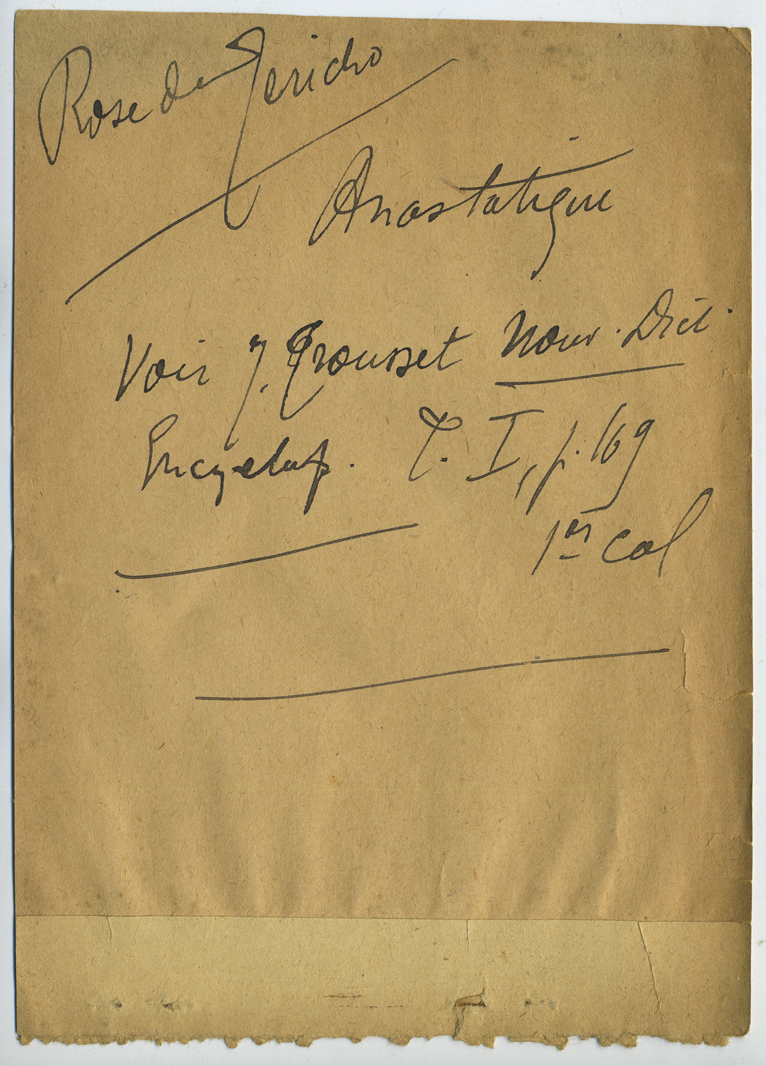 Rose de Jericho
Anastatique
Voir J. Trousset Nouv. Dict.
Encyclop. T. I, p. 169
1er col